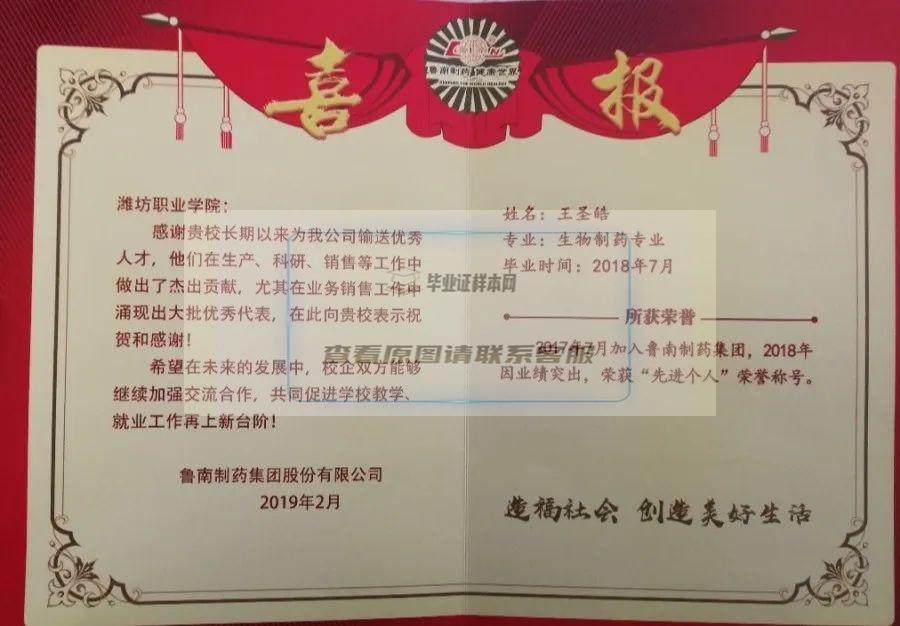 喜报
鲁南制药 健康世界
潍坊职业学院：
感谢贵校长期以来为我公司输送优秀
人才，他们在生产、科研、销售等工作中
做出了杰出贡献，尤其在业务销售工作中
涌现出大批优秀代表，在此向贵校表示祝
贺和感谢！
希望在未来的发展中，校企双方能够
继续加强交流合作，共同促进学校教学、
就业工作再上新台阶！
鲁南制药集团股份有限公司
2019年2月
姓名：王圣皓
专业：生物制药专业
毕业时间：2018年7月
所获荣誉
2017年7月加入鲁南制药集团，2018年
因业绩突出，荣获“先进个人”荣誉称号。
造福社会 创造美好生活
毕业证样本网
查看原图请联系客服